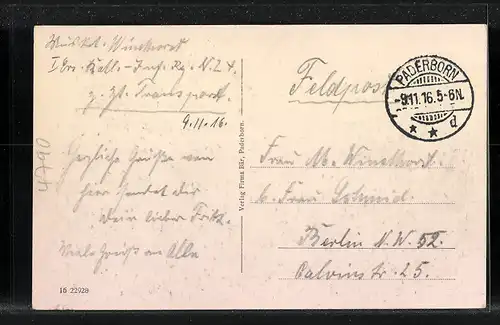 Musket. Winskowst
I. Ers. Batl. Inf. Rg. N.
z. Zt. Transport.
9.11.16.
Herzliche Grüße von
hier sendet dir
dein lieber Fritz.
Viele Grüße an Alle
4790
16 22928
Verlag Firma Bär, Paderborn.
Feldpost
PADERBORN
-9.11.16.5-6N.
* * d
Frau M. Winskowst.
b. Frau Schmid.
Berlin N.W. 52.
Calvinstr. 25.